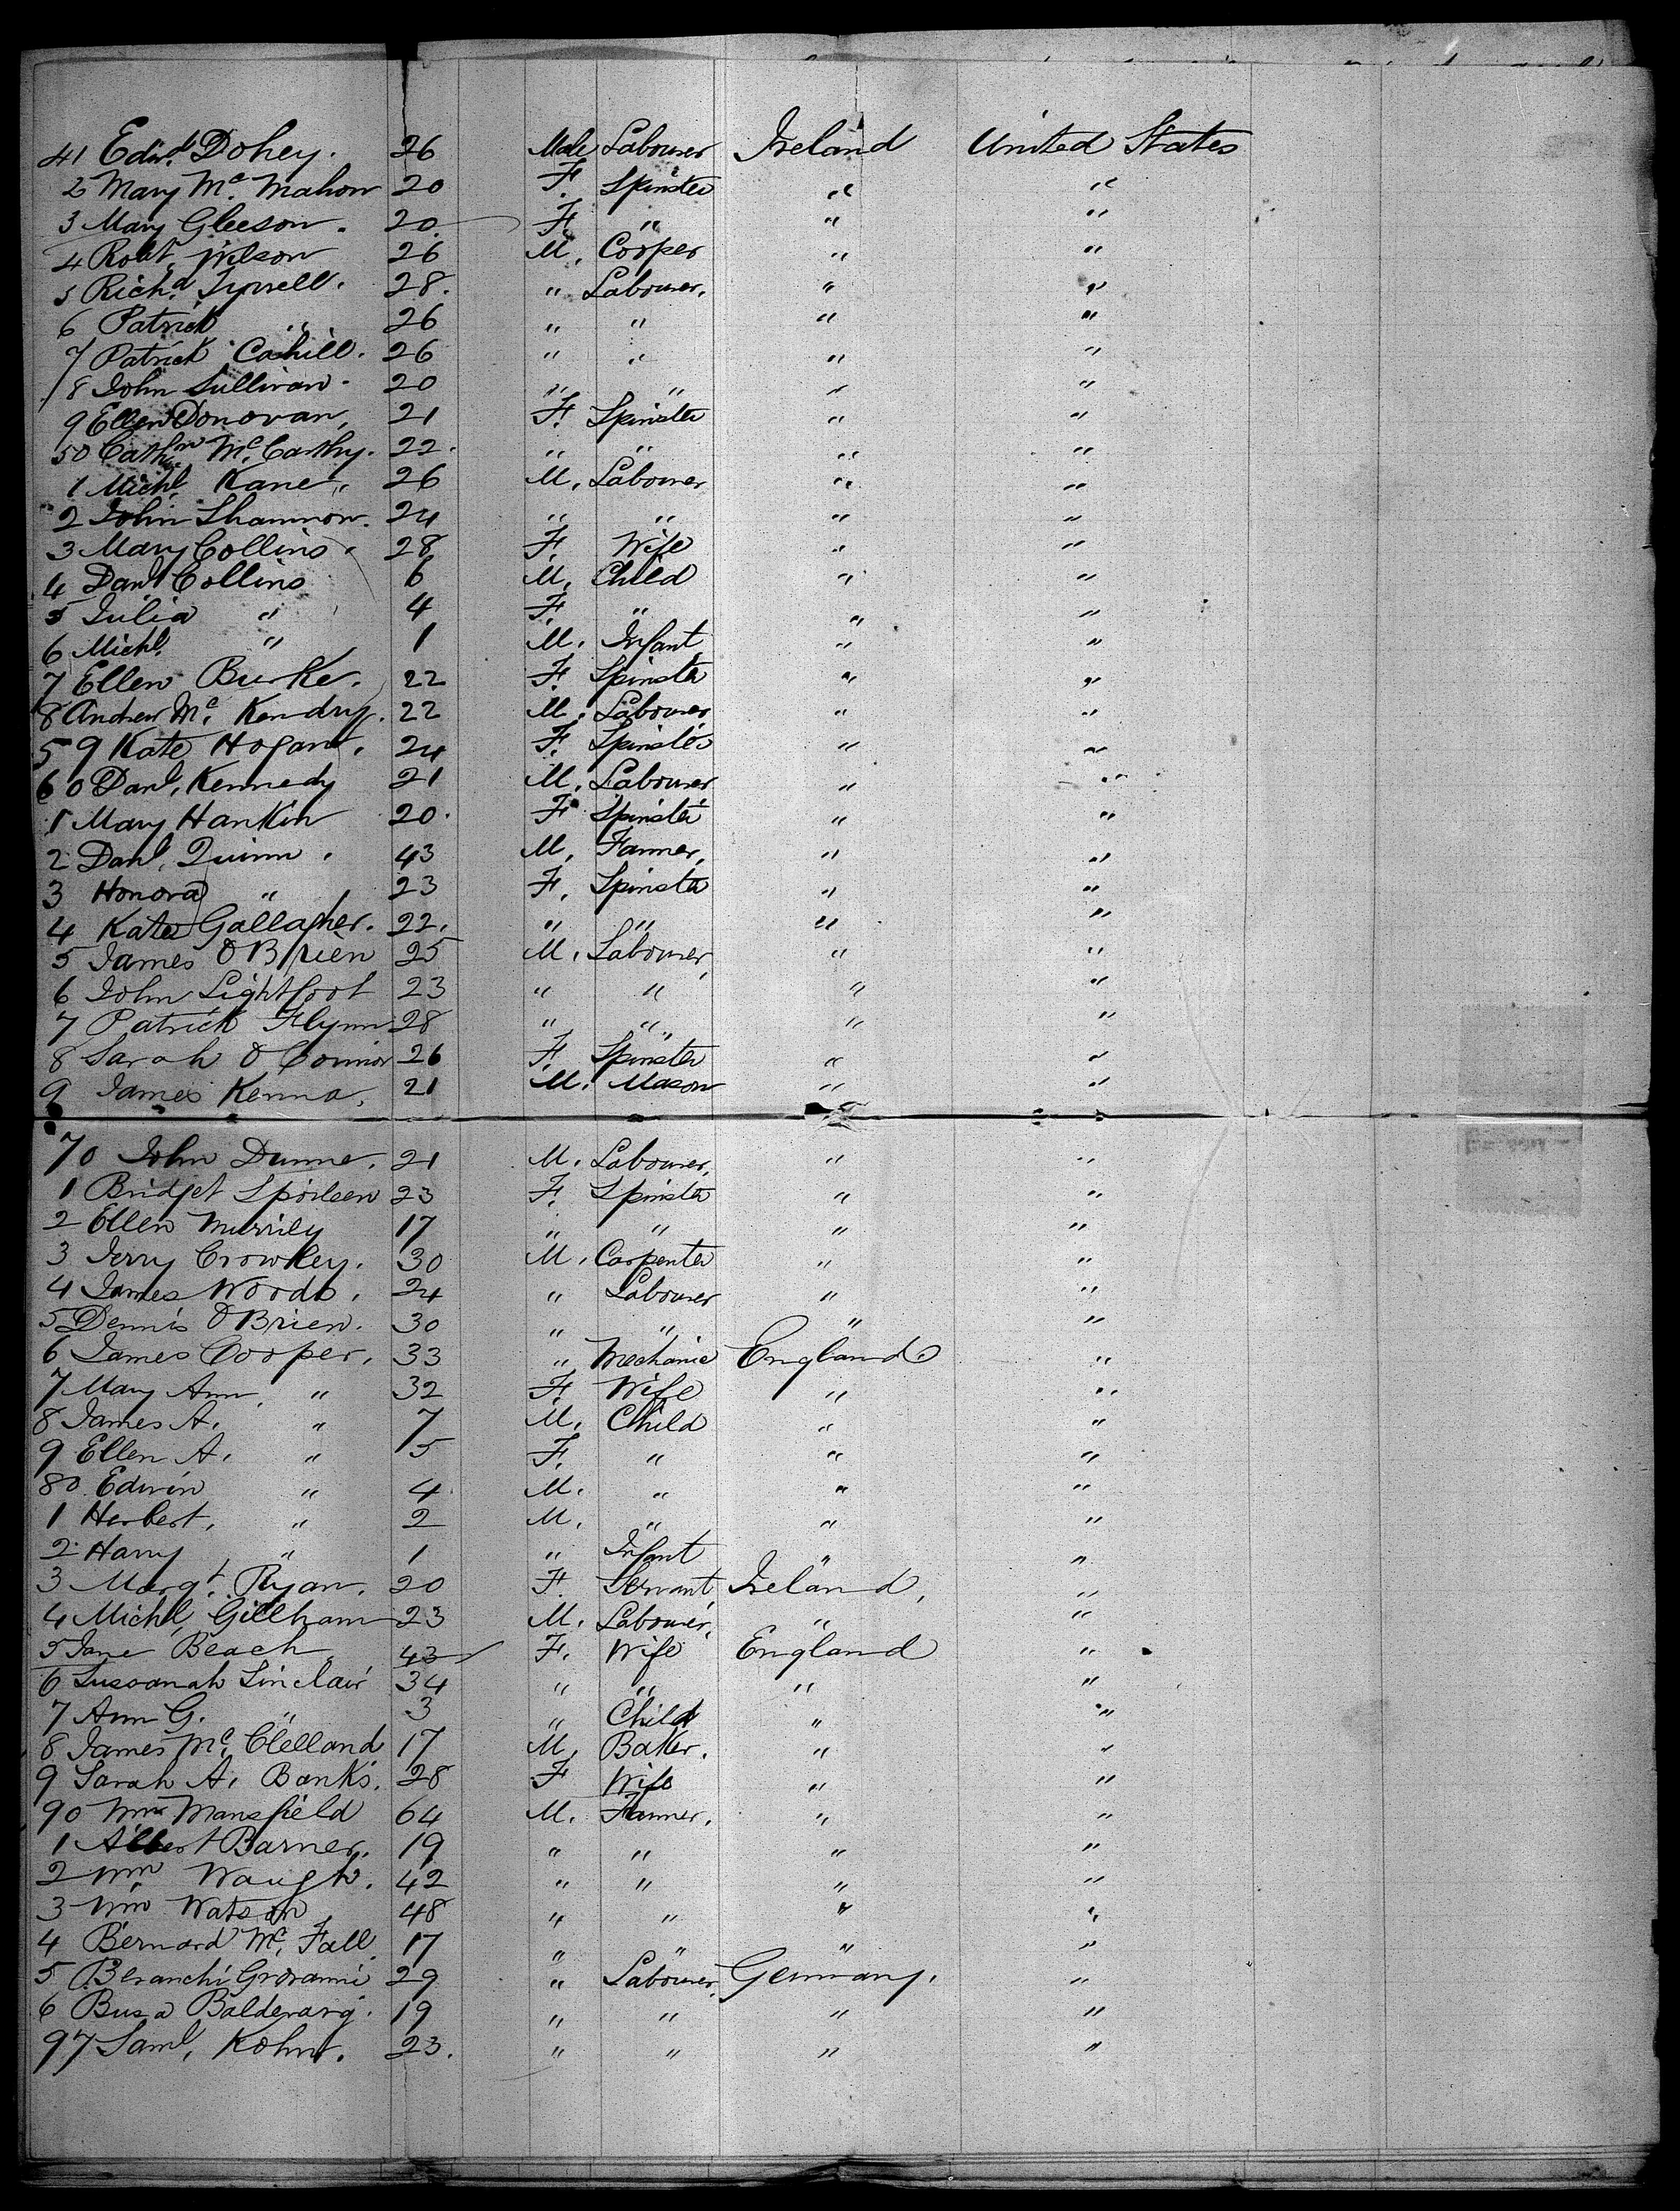 41 Edwd Dohey. 26 Male Labourer Ireland United States
2 Mary Mc. Mahon 20 F. Spinster " "
3 Mary Gleeson. 20. F. " " "
4 Robt. Wilson 26 M. Cooper " "
5 Richd. Tyrrell. 28. " Labourer. " "
6 Patrick " 26 " " " "
7 Patrick Cahill. 26 " " " "
8 John Sullivan. 20 " " " "
9 Ellen Donovan, 21 F. Spinster " "
50 Cathne Mc. Carthy. 22. " " " "
1 Michl. Kane, 26 M. Labourer " "
2 John Shannon. 24 " " " "
3 Mary Collins. 28 F. Wife " "
4 Danl Collins 6 M. Child " "
5 Julia " 4 F. " " "
6 Michl. " 1 M. Infant " "
7 Ellen Burke. 22 F. Spinster " "
8 Andrew Mc. Kendry. 22 M. Labourer " "
59 Kate Hogan. 24 F. Spinster " "
60 Danl. Kennedy 21 M. Labourer " "
1 Mary Hankin 20. F. Spinster " "
2 Danl. Quinn. 43 M. Farmer, " "
3 Honora " 23 F. Spinster " "
4 Kate Gallagher. 22. " " " "
5 James O Brien 25 M. Labourer, " "
6 John Lightfoot 23 " " " "
7 Patrick Flynn 28 " " " "
8 Sarah O Connor 26 F. Spinster " "
9 James Kenna, 21 M. Mason " "
70 John Dunne. 21 M. Labourer, " "
1 Bridget 23 F. Spinster " "
2 Ellen 17 " " " "
3 Jerry Crowley. 30 M. Carpenter " "
4 James Woods. 24 " Labourer " "
5 Dennis O Brien. 30 " " " "
6 James Cooper, 33 " Mechanic England "
7 Mary Ann " 32 F. Wife " "
8 James A. " 7 M. Child " "
9 Ellen A. " 5 F. " " "
80 Edwin " 4 M. " " "
1 Herbert, " 2 M. " " "
2 Harry " 1 " Infant " "
3 Margt. Ryan. 20 F. Servant Ireland, "
4 Michl. Gillham 23 M. Labourer, " "
5 Jane Beach 43 F. Wife England "
6 Sussanah Sinclair 34 " " " "
7 Ann G. " 3 " Child " "
8 James Mc. Clelland 17 M. Baker. " "
9 Sarah A. Banks. 28 F Wife " "
90 Wm Mansfield 64 M. Farmer. " "
1 Albert Barner. 19 " " " "
2 Wm Waugh. 42 " " " "
3 Wm Watson 48 " " " "
4 Bernard Mc. Fall 17 " " " "
5 29 " Labourer, Germany. "
6 19 " " " "
97 Saml. Kohn. 23. " " " "